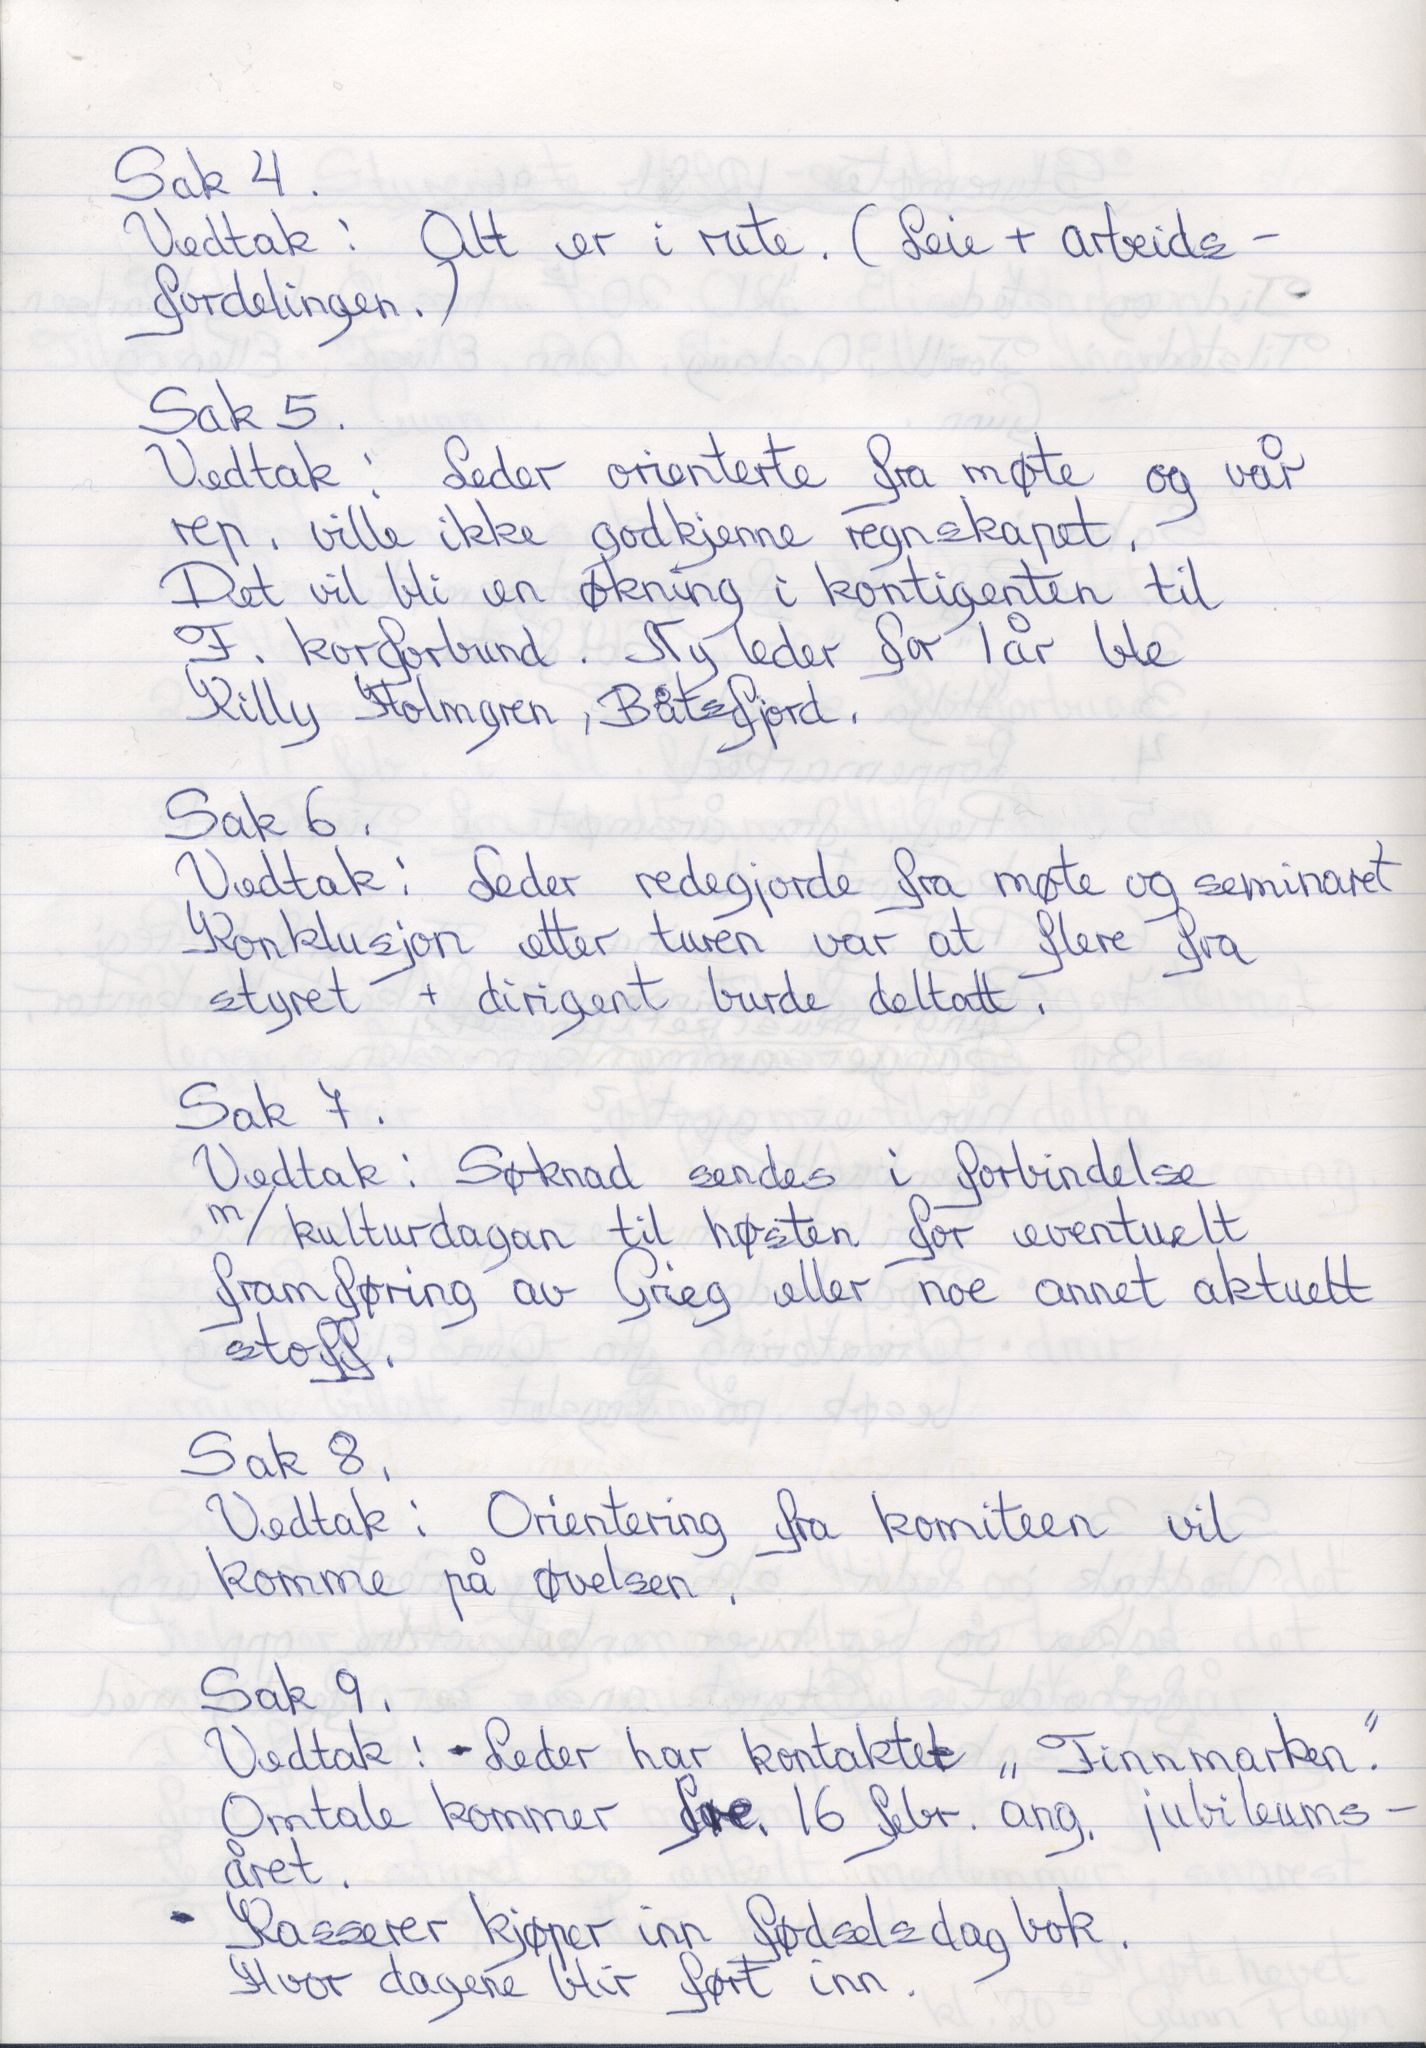 Sak 4.
Vedtak: Alt er i rute. (Leie + arbeids-
fordelingen.)
Sak 5.
Vedtak: Leder orienterte fra møte og vår
rep. ville ikke godkjenne regnskapet.
Det vil bli en økning i kontigenten til
F. korforbund. Ny leder for 1 år ble
Killy Holmgren, Båtsfjord.
Sak 6.
Vedtak: Leder redegjorde fra møte og seminaret
Konklusjon etter turen var at flere fra
styret + dirigent burde deltatt.
Sak 7.
Vedtak: Søknad sendes i forbindelse
m/kulturdagan til høsten for eventuelt
framføring av Grieg eller noe annet aktuelt
stoff.
Sak 8.
Vedtak: Orientering fra komiteen vil
komme på øvelsen.
Sak 9.
Vedtak: - Leder har kontaktet „Finnmarken."
Omtale kommer fre. 16 febr. ang. jubileums-
året.
- Kasserer kjøper inn fødselsdagbok.
Hvor dagene blir ført inn.